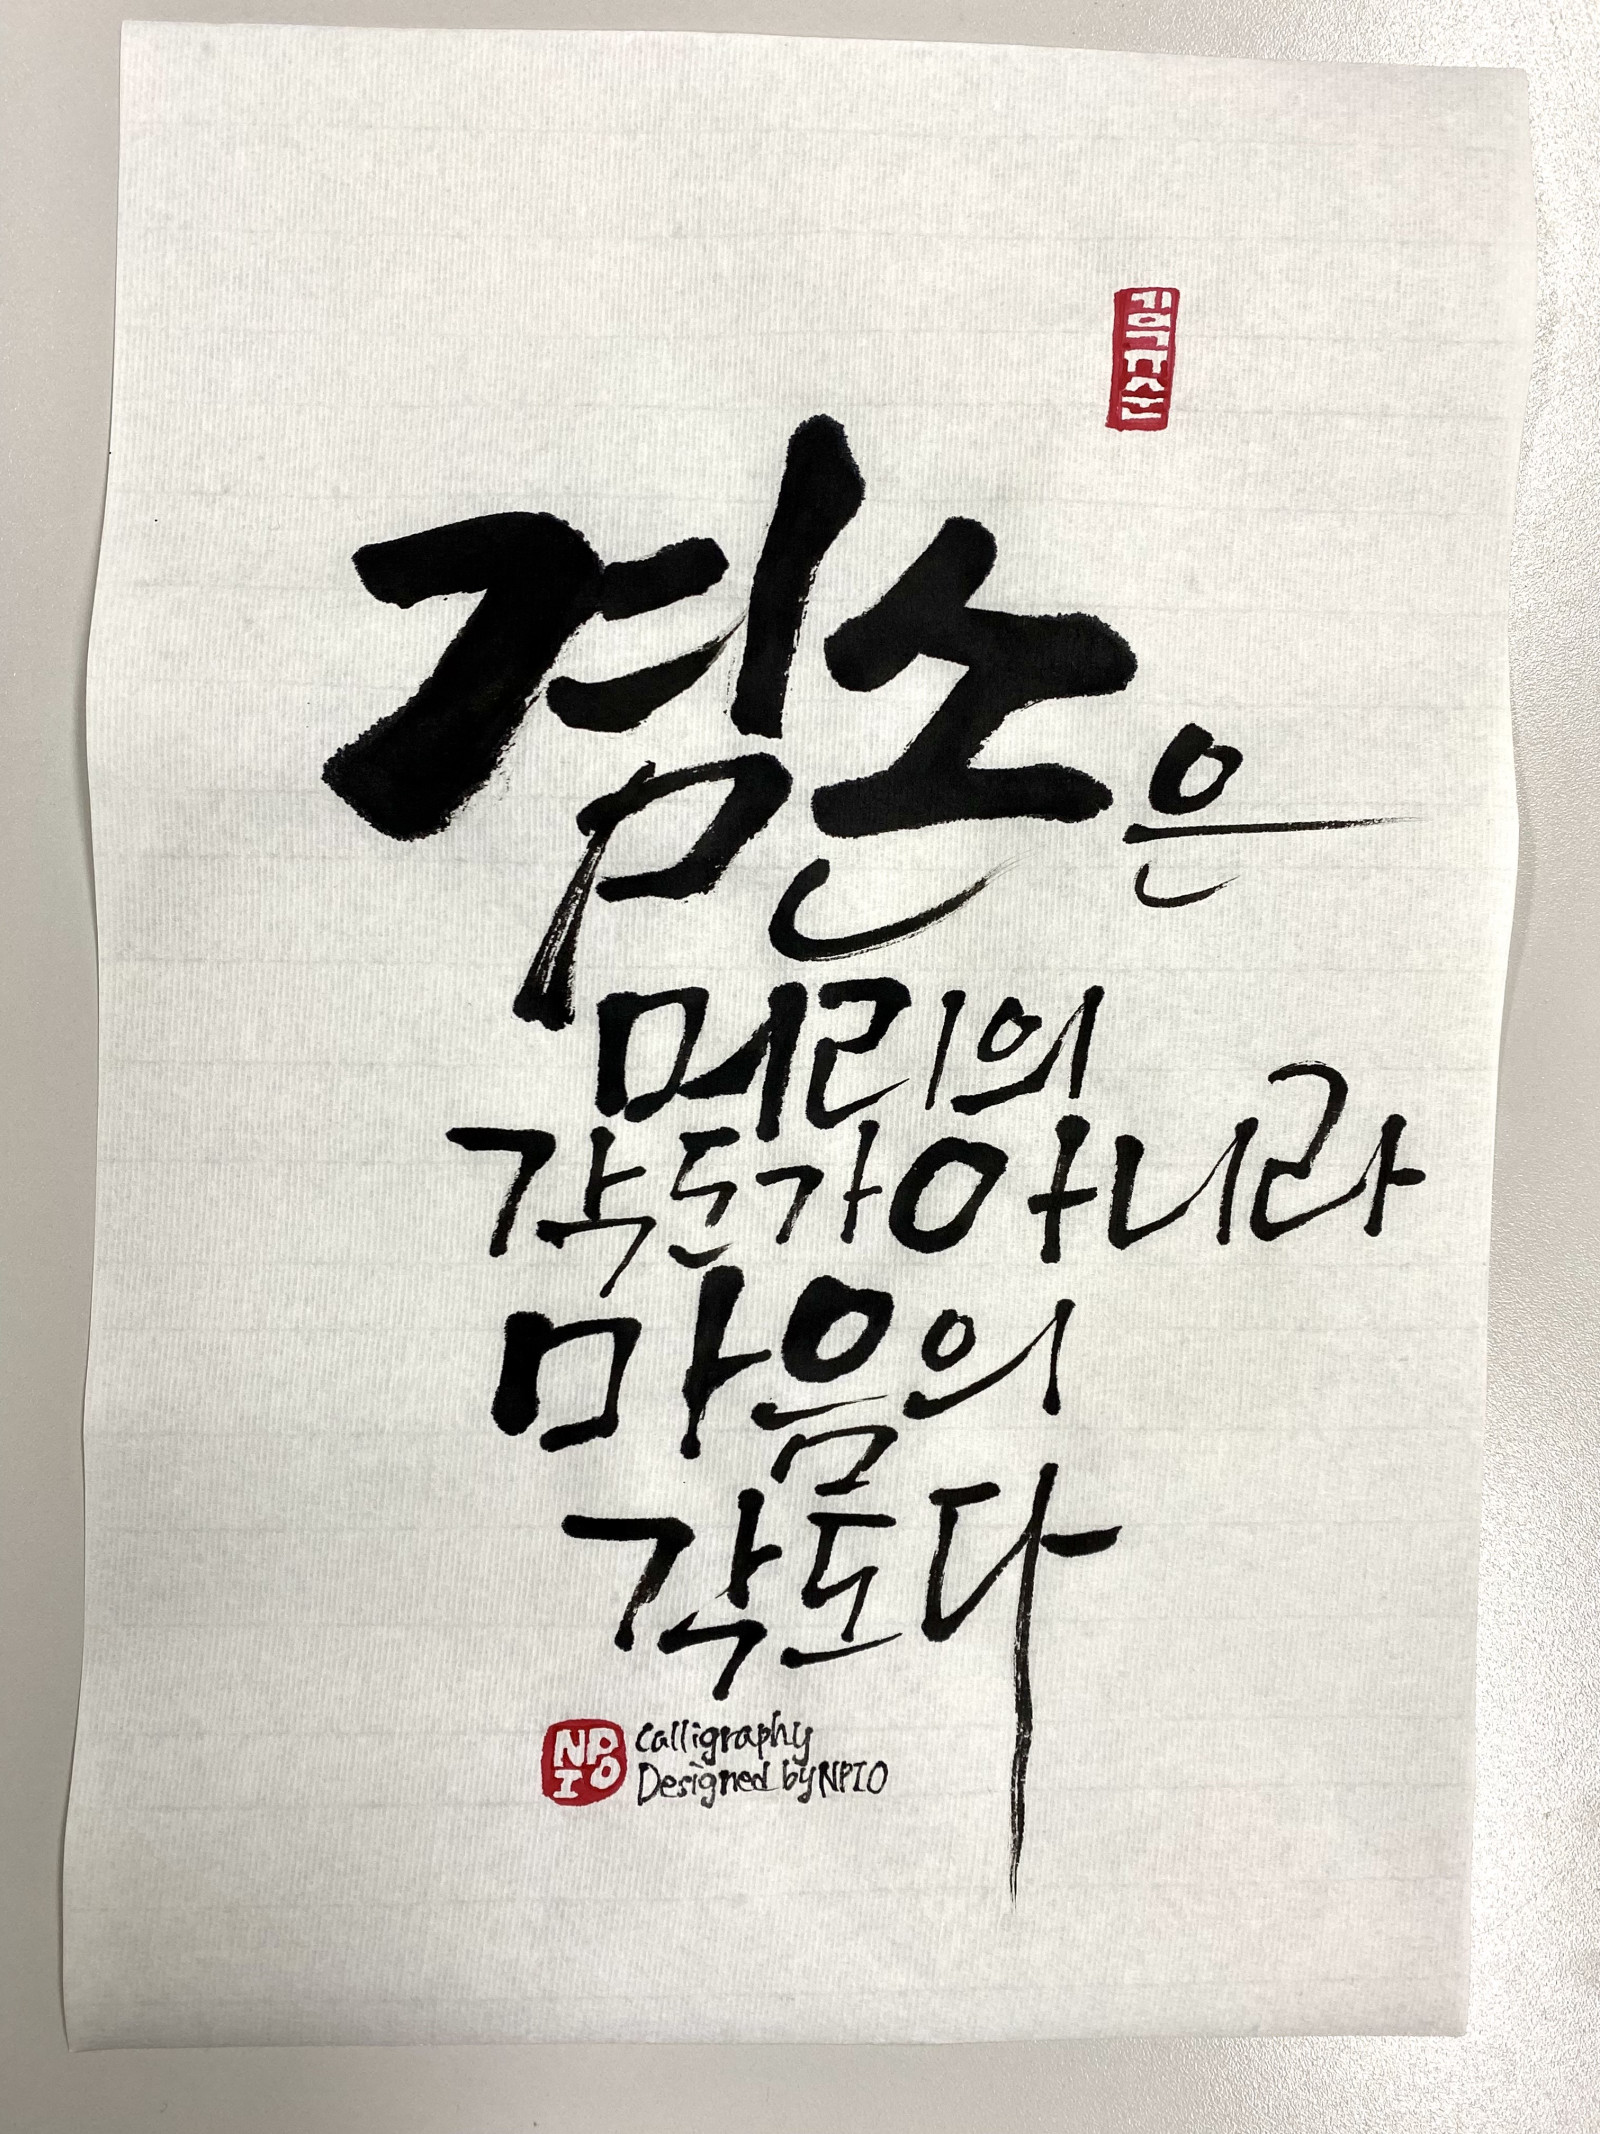 겸손은
머리의
각도가 아니라
마음의
각도다
NPIO
Calligraphy
Designed by NPIO